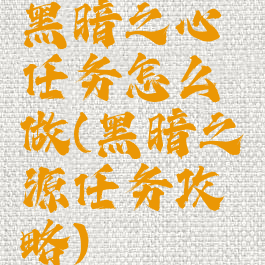 黑暗之心
任务怎么
做(黑暗之
源任务攻
略)